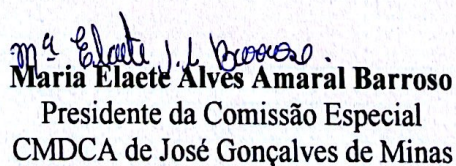 Mª Elaete
Maria Elaete Alves Amaral Barroso
Presidente da Comissão Especial
CMDCA de José Gonçalves de Minas